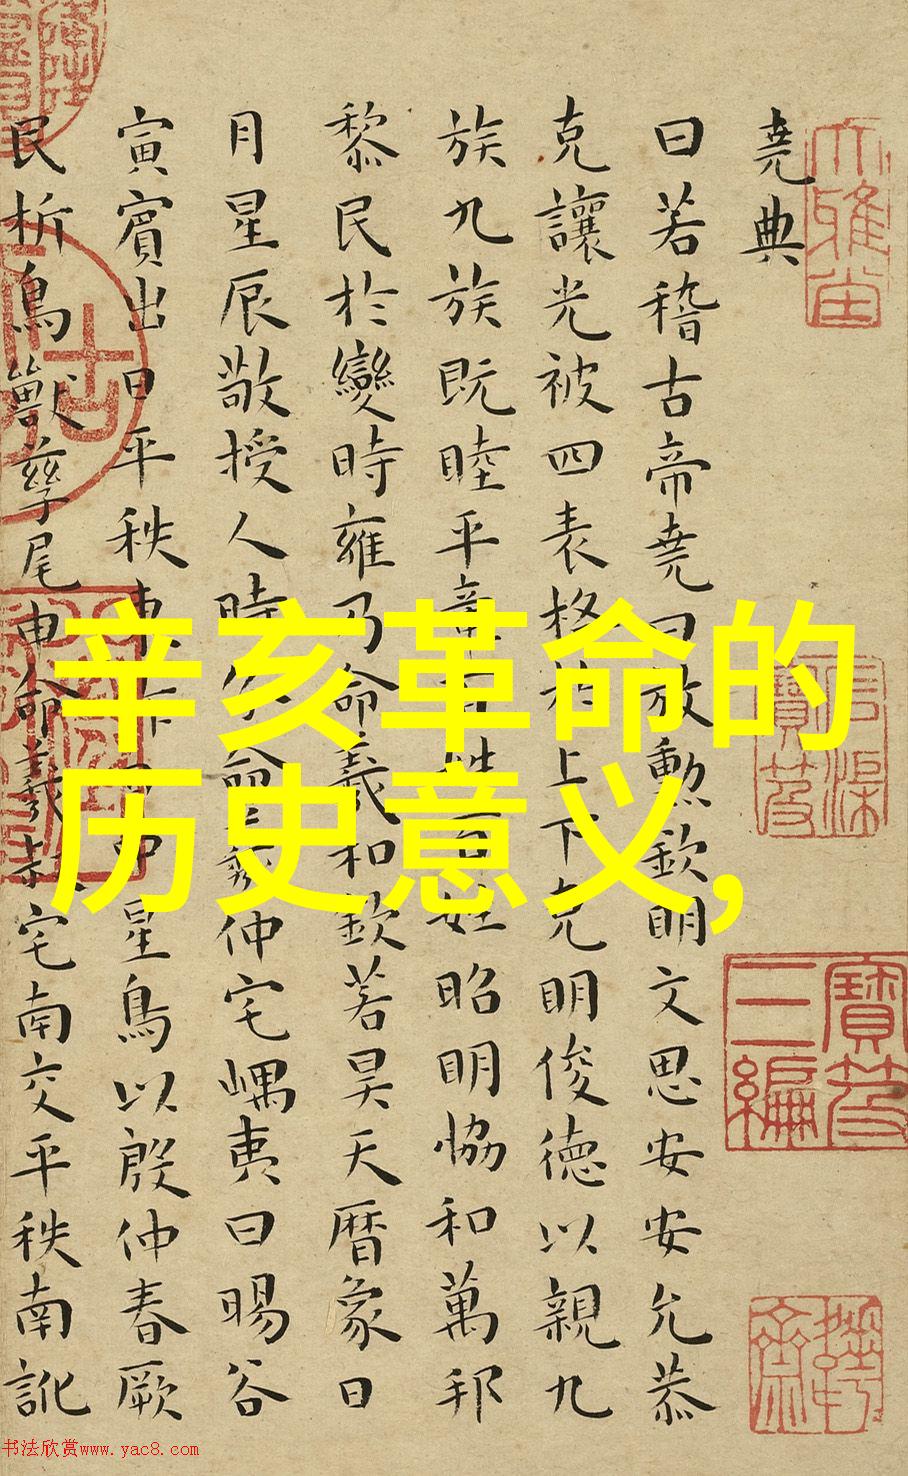 堯典
曰若稽古帝堯曰放勳欽明文思安安允恭
克讓光被四表格於上下克明俊德以親九
族九族既睦平章百姓百姓昭明恊和萬邦
黎民於變時雍乃命羲和欽若昊天暦象日
月星辰敬授人時分命羲仲宅嵎夷曰暘谷
寅賓出日平秩東作日中星鳥以殷仲春厥
民析鳥獸孳尾申命羲叔宅南交平秩南訛
辛亥革命的
历史意义,
石渠
寶笈
寶笈
三編
书法欣赏www.yac8.com